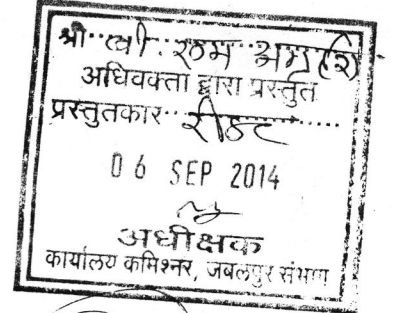 श्री व्ही. एम
अधिवक्ता द्वारा प्रस्तुत
प्रस्तुतकार रीडर
06 SEP 2014
अधीक्षक
कार्यालय कमिश्नर, जबलपुर संभाग